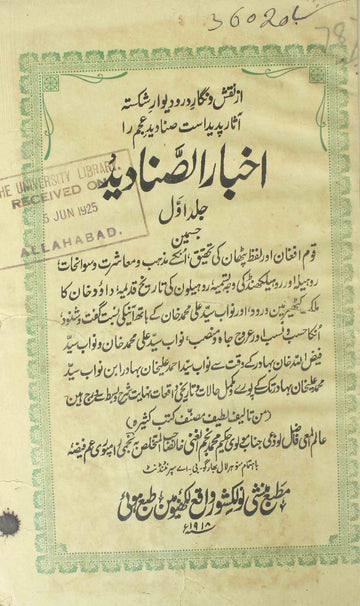 36020
78
از نقش و نگارِ در و دیوار شکستہ
آثار پدید است صنادید عجم را
اخبار الصَّنادید
THE UNIVERSITY LIBRARY
RECEIVED ON
5 JUN 1925
ALLAHABAD.
جلد اوّل
جسمین
قوم افغان اور لفظ پٹھان کی تحقیق، اُنکے مذہب و معاشرت و سوانحات،
روہیلہ اور روہیلکھنڈ کی وجہ تسمیہ، روہیلوں کی تاریخ قدیم، داؤد خان کا
ملک کٹھیر مین ورود، اور نواب سیّد علی محمد خان کے ہاتھ آنیکی نسبت گفت و شنود،
اُنکا حسب و نسب اور عروج جاہ و منصب، نواب سیّد علی محمد خان و نواب سیّد
فیض اللہ خان بہادر کے وقت سے نواب سید احمد علیخان بہادر ابن نواب سیّد
محمد علیخان بہادر تک کے پورے و مکمل حالات و تاریخی واقعات نہایت شرح و بسط سے درج ہین
(من تالیف لطیف مصنّف کتب کثیرہ)
عالم المعی فاضل لوذعی جناب مولوی حکیم محمد نجم الغنی خان صاحب المتخلص بہ نجمی رامپوری عم فیضہ
باہتمام منوہر لال بھارگو بی۔ اے سپرنٹنڈنٹ
مطبع منشی نولکشور واقع لکھنؤ مین طبع ہوئی
۱۹۱۸ء